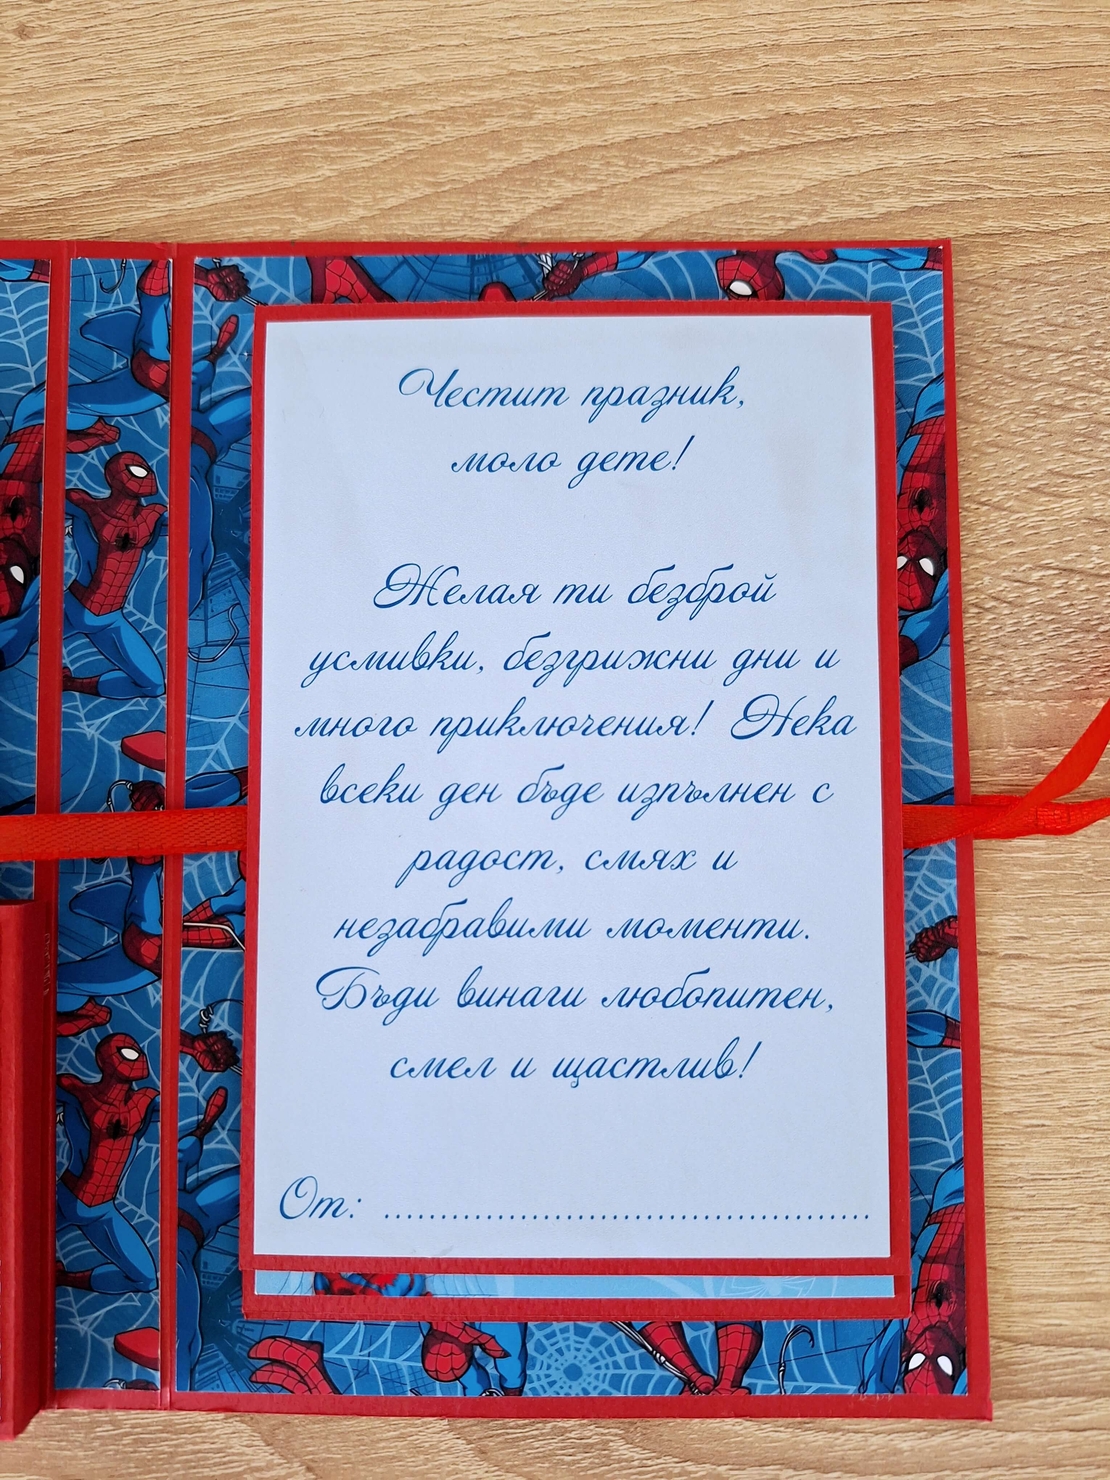 Честит празник,
моло дете!
Желая ти безброй
усмивки, безгрижни дни и
много приключения! Нека
всеки ден бъде изпълнен с
радост, смях и
незабравими моменти.
Бъди винаги любопитен,
смел и щастлив!
От: ............................................